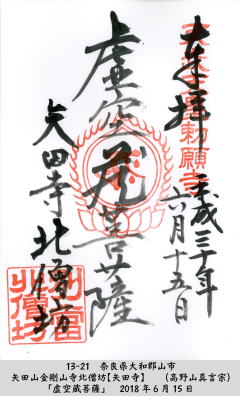 奉拝
平成三十年
六月十五日
虚空蔵菩薩
矢田寺北僧坊
勅願寺
北僧坊
13-21　奈良県大和郡山市
矢田山金剛山寺北僧坊【矢田寺】　（高野山真言宗）
「虚空蔵菩薩」　2018年6月15日